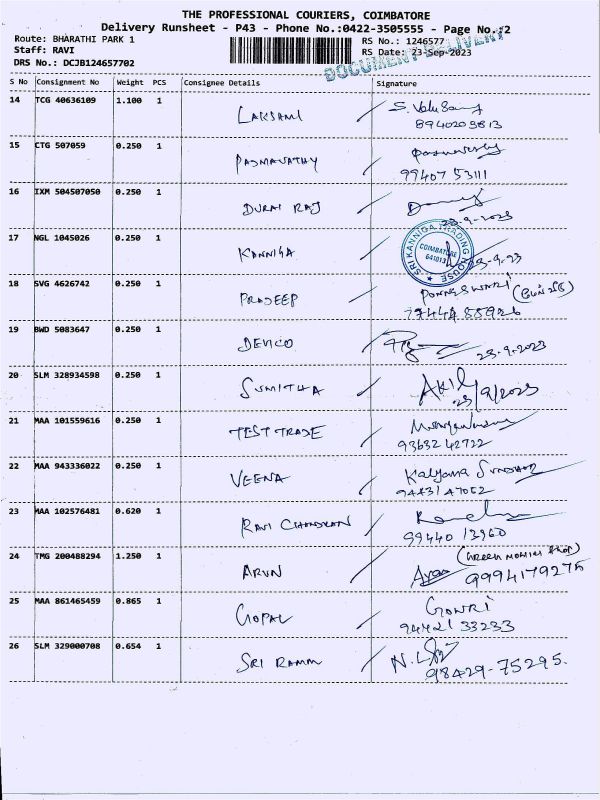 THE PROFESSIONAL COURIERS, COIMBATORE
Delivery Runsheet - P43 - Phone No.:0422-3505555 - Page No.:2
Route: BHARATHI PARK 1 RS No.: 1246577
Staff: RAVI RS Date: 23-Sep-2023
DRS No.: DCJB124657702 DOCUMENT DELIVERY
S No Consignment No Weight PCS Consignee Details Signature
14 TCG 40636109 1.100 1 LAKSAMI
8940203813
15 CTG 507059 0.250 1 PADMAVATHY
99407 53111
16 IXM 504507050 0.250 1 DURAI RAJ
23-9-2023
17 NGL 1045026 0.250 1 KANNIGA SRI KANNIGA TRADING HOUSE COIMBATORE 641013
18 SVG 4626742 0.250 1 PRADEEP
19 BWD 5083647 0.250 1 DEVICO 23-9-2023
20 SLM 328934598 0.250 1 SUMITHA AKIL
23/9/2023
21 MAA 101559616 0.250 1 TEST TRADE
93632 42722
22 MAA 943336022 0.250 1 VEENA Kalyana Sundar
9443147052
23 MAA 102576481 0.620 1 RAVI CHANDRAN
99440 13960
24 TMG 200488294 1.250 1 ARUN
9994179275
25 MAA 861465459 0.865 1 GOPAL GOWRI
94421 33233
26 SLM 329000708 0.654 1 SRI RAMM
98429-75295.